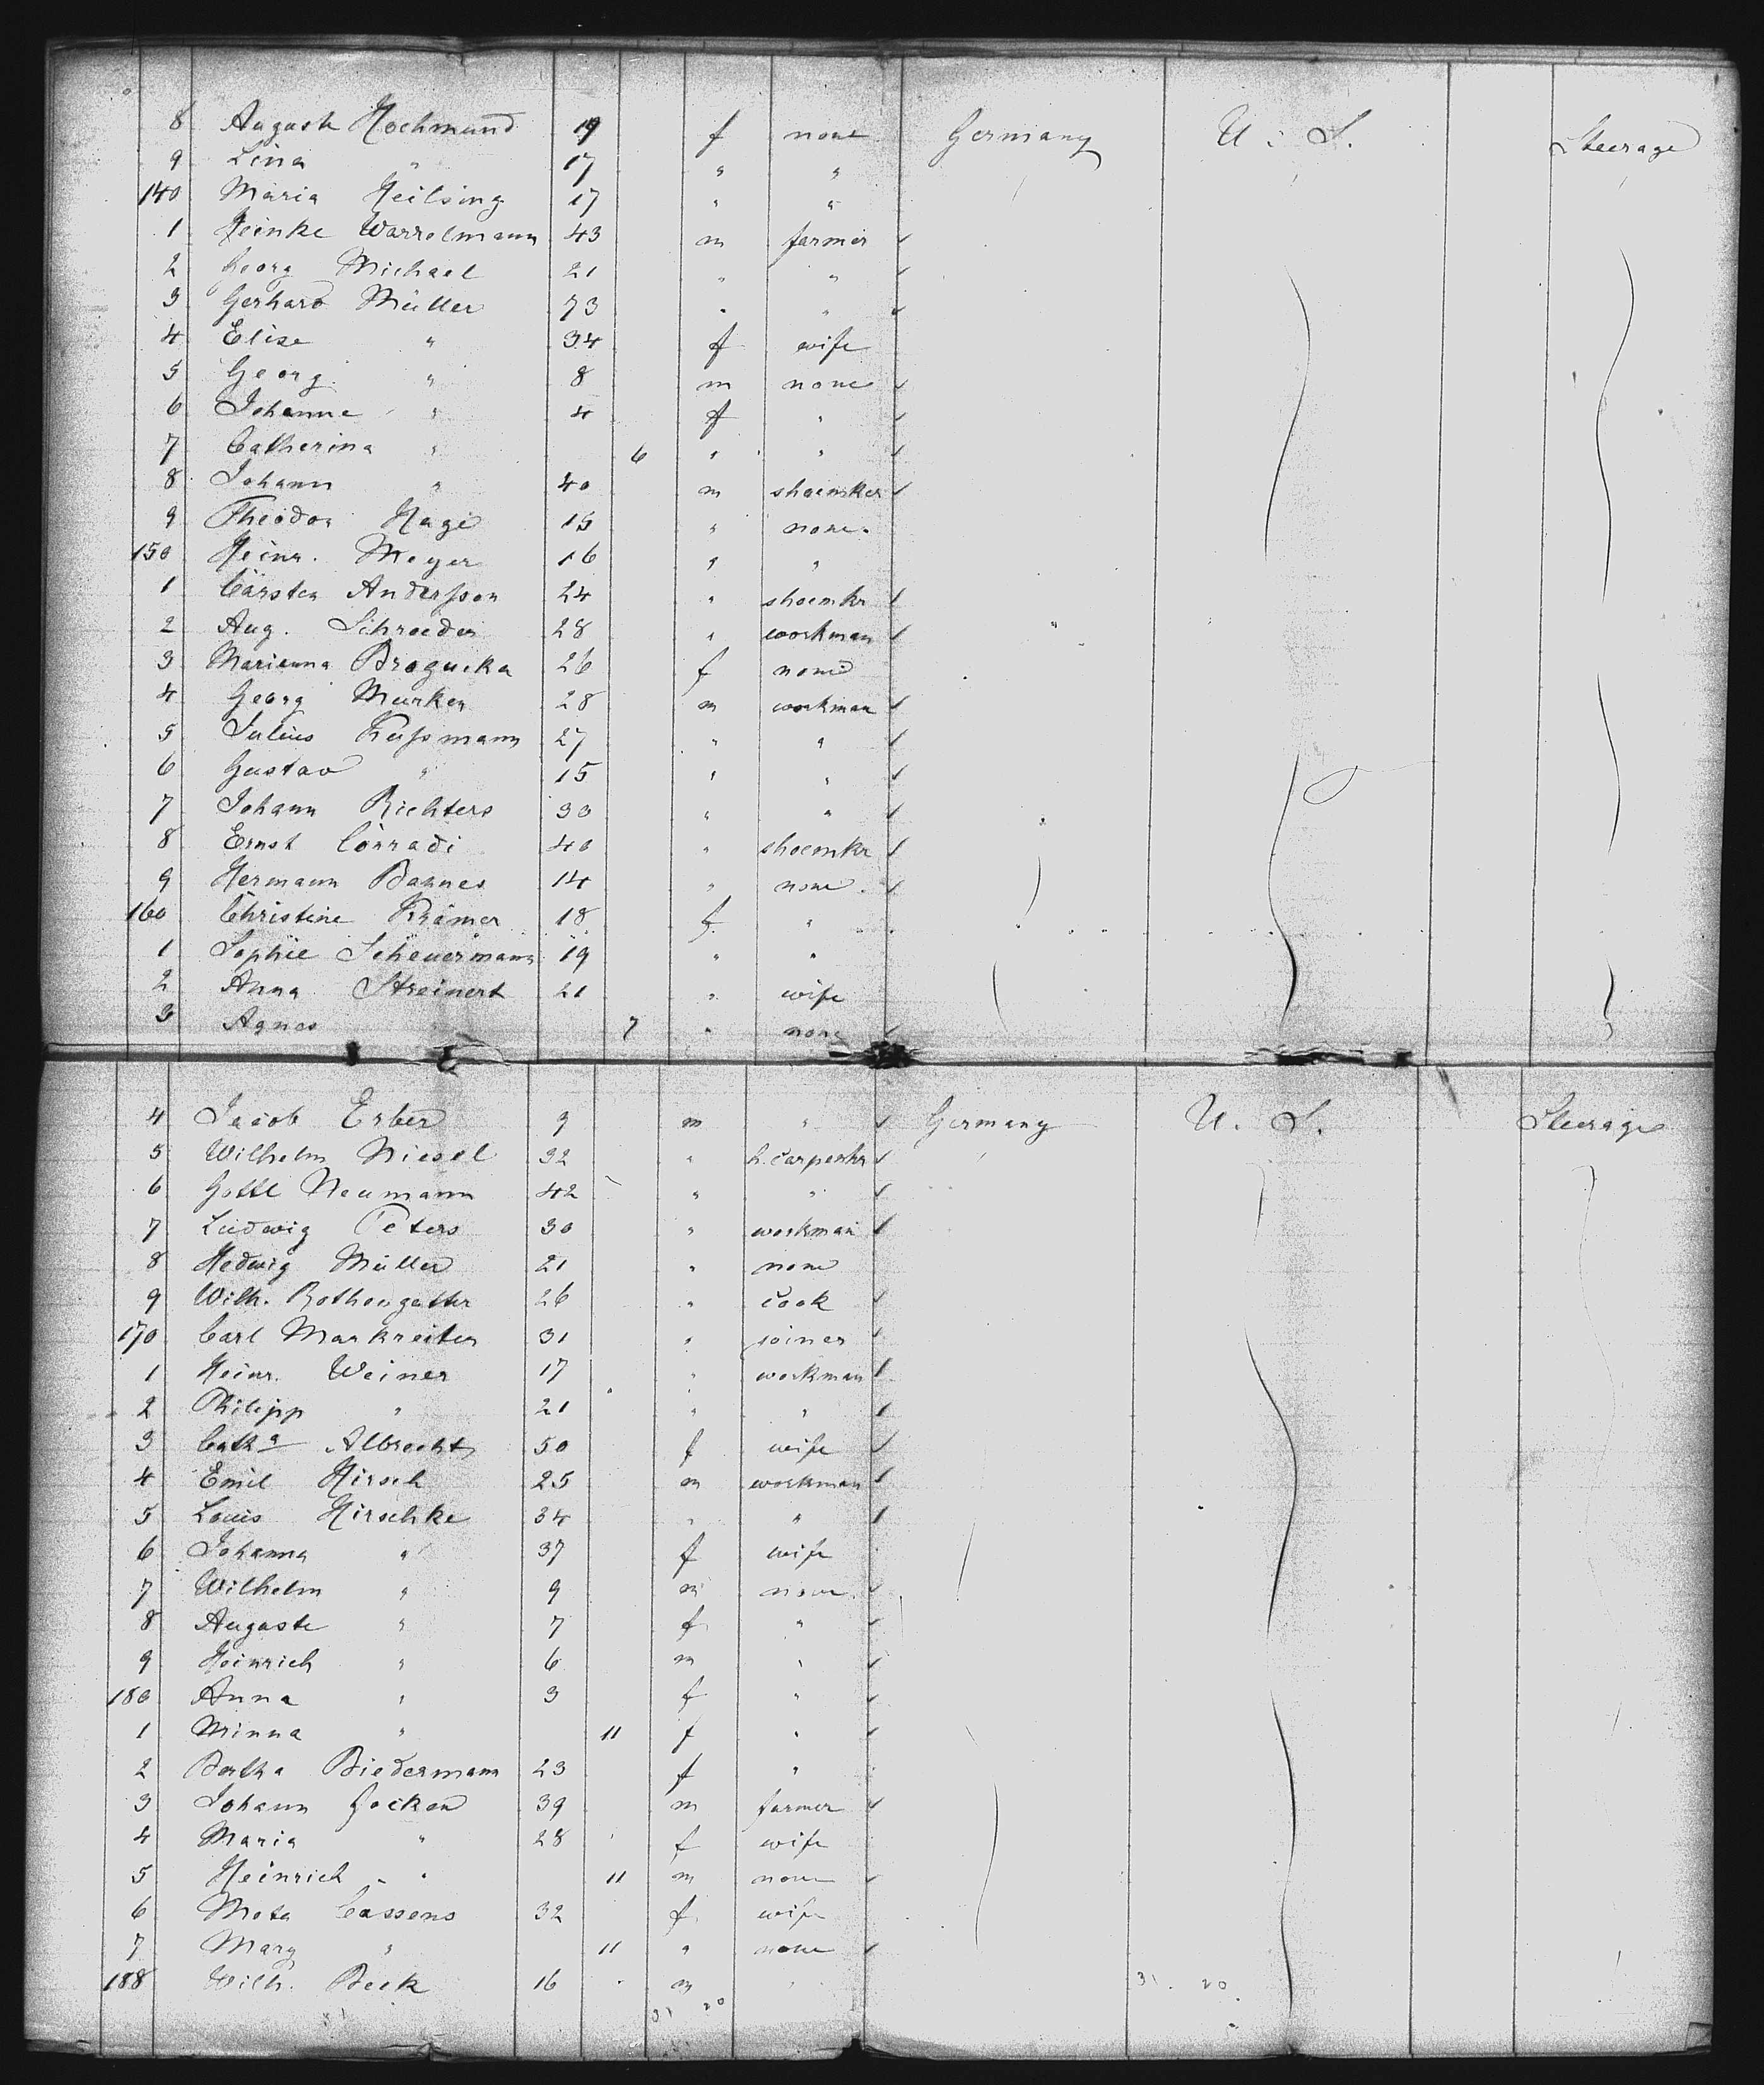 8 Auguste Hochmund 19 f none Germany U. S. Steerage
9 Lina " 17 " "
140 Maria Heilsing 17 " "
1 Heinke Warrelmann 43 m farmer
2 Georg Michael 21 " "
3 Gerhard Müller 73 " "
4 Elise " 34 f wife
5 Georg " 8 m none
6 Johanne " 4 f "
7 Catherina " 6 " "
8 Johann " 40 m shoemker
9 Theodor Hage 15 " none.
150 Heinr. Meyer 16 " "
1 Carsten Andersson 24 " shoemkr
2 Aug. Schroeder 28 " workman
3 Marianna 26 f none
4 Georg Murken 28 m workman
5 Julius Russmann 27 " "
6 Gustav " 15 " "
7 Johann Richters 30 " "
8 Ernst Conradi 40 " shoemkr
9 Hermann Bannes 14 " none.
160 Christine Krämer 18 f. "
1 Sophie Scheuermann 19 " "
2 Anna Streinert 21 " wife
3 Agnes " 7 " none
4 Jacob Erber 9 m " Germany U. S. Steerage
5 Wilhelm Niesel 32 " h. carpentr
6 Gottl Neumann 42 " "
7 Ludwig Peters 30 " workman
8 Hedwig Müller 21 " none
9 Wilh. Rothengatter 26 " cook
170 Carl Markreiter 31 " joiner
1 Heinr. Weiner 17 " workman
2 Philipp " 21 " "
3 Catha Albrecht 50 f wife
4 Emil Hirsch 25 m workman
5 Louis Hirschke 34 " "
6 Johanna " 37 f wife
7 Wilhelm " 9 m none.
8 Auguste " 7 f "
9 Heinrich " 6 m "
180 Anna " 3 f "
1 Minna " 11 f "
2 Bertha Biedermann 23 f "
3 Johann Focken 39 m farmer
4 Maria " 28 f wife
5 Heinrich " 11 m none
6 Meta Cassens 32 f. wife
7 Mary " 11 " none
188 Wilh. Beck 16 m " 31. 20
31 20